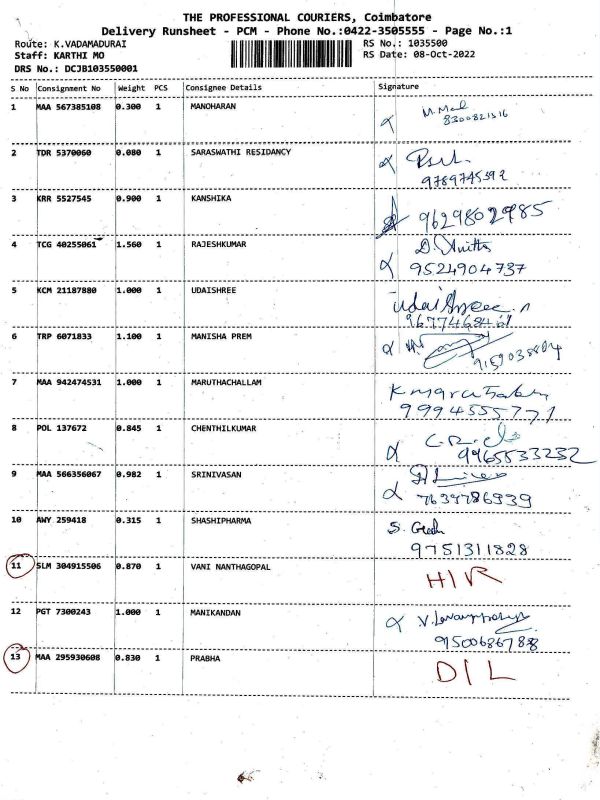 THE PROFESSIONAL COURIERS, Coimbatore
Delivery Runsheet - PCM - Phone No.:0422-3505555 - Page No.:1
Route: K.VADAMADURAI RS No.: 1035500
Staff: KARTHI MO RS Date: 08-Oct-2022
DRS No.: DCJB103550001
S No Consignment No Weight PCS Consignee Details Signature
1 MAA 567385108 0.300 1 MANOHARAN
2 TDR 5370060 0.080 1 SARASWATHI RESIDANCY
9789745392
3 KRR 5527545 0.900 1 KANSHIKA 9629802985
4 TCG 40255061 1.560 1 RAJESHKUMAR
9524904737
5 KCM 21187880 1.000 1 UDAISHREE
6 TRP 6071833 1.100 1 MANISHA PREM
7 MAA 942474531 1.000 1 MARUTHACHALLAM
9994555771
8 POL 137672 0.845 1 CHENTHILKUMAR
9965533232
9 MAA 566356067 0.982 1 SRINIVASAN
7639786939
10 AWY 259418 0.315 1 SHASHIPHARMA
9751311828
11 SLM 304915506 0.870 1 VANI NANTHAGOPAL H/R
12 PGT 7300243 1.000 1 MANIKANDAN
13 MAA 295930608 0.830 1 PRABHA D/L